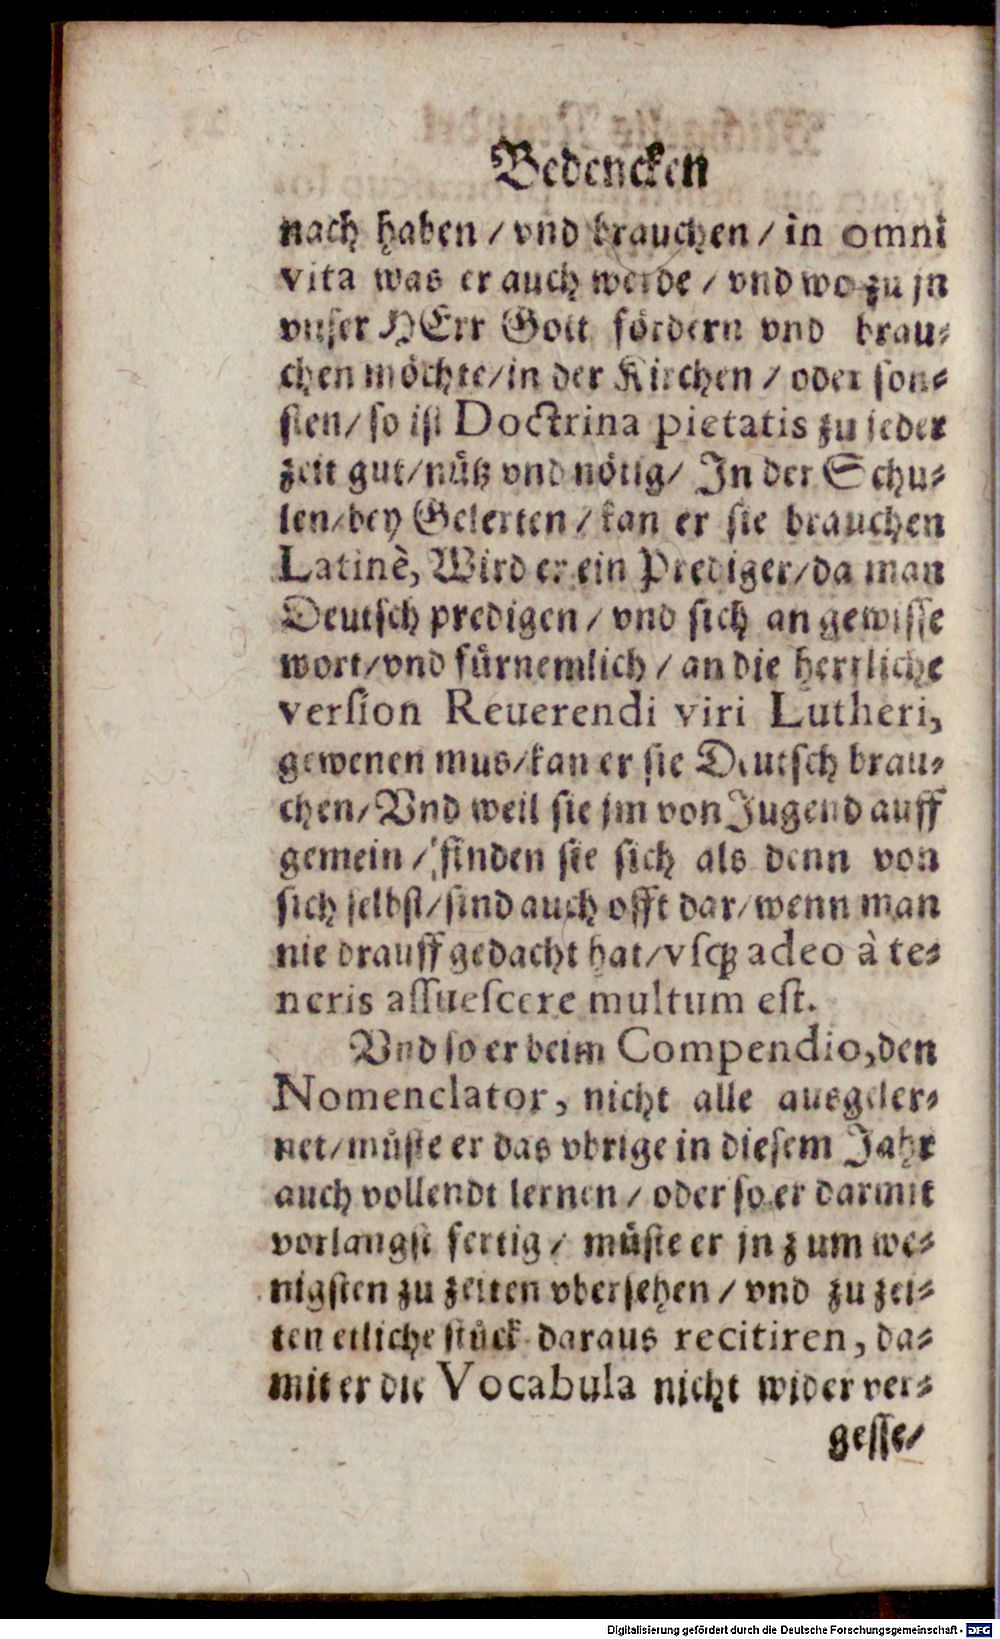 Bedencken
nach haben / vnd brauchen / in omni
vita was er auch werde / vnd wo zu jn
vnser HErr Gott fördern vnd brau⸗
chen möchte/in der Kirchen / oder son⸗
sten/ so ist Doctrina pietatis zu jeder
zeit gut/nütz vnd nötig/ In der Schu⸗
len/bey Gelerten / kan er sie brauchen
Latinè, Wird er ein Prediger/da man
Deutsch predigen / vnd sich an gewisse
wort/vnd fürnemlich / an die herrliche
version Reuerendi viri Lutheri,
gewenen mus/kan er sie Deutsch brau⸗
chen/ Vnd weil sie jm von Jugend auff
gemein / finden sie sich als denn von
sich selbst/sind auch offt dar/wenn man
nie drauff gedacht hat/vsq; adeo à te⸗
neris assuescere multum est.
Vnd so er beim Compendio, den
Nomenclator, nicht alle ausgeler⸗
net/müste er das vbrige in diesem Jahr
auch vollendt lernen / oder so er darmit
vorlangst fertig / müste er jn zum we⸗
nigsten zu zeiten vbersehen / vnd zu zei⸗
ten etliche stück daraus recitiren, da⸗
mit er die Vocabula nicht wider ver⸗
gesse/
Digitalisierung gefördert durch die Deutsche Forschungsgemeinschaft - DFG